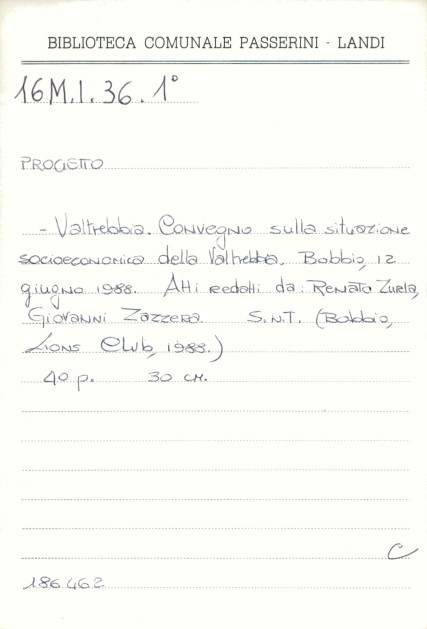 BIBLIOTECA COMUNALE PASSERINI - LANDI
16M.I.36.1°
PROGETTO
- Valtrebbia. Convegno sulla situazione
socioeconomica della Valtrebbia. Bobbio, 12
giugno 1988. Atti redatti da: Renato Zurla,
Giovanni Zazzera. S.N.T. (Bobbio,
Lions Club, 1988.)
40 p. 30 cm.
C
186.462